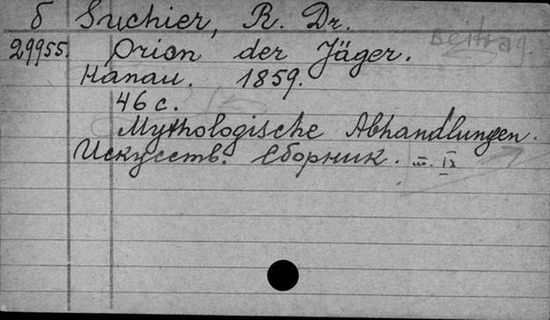 б Suchier, R. Dr.
Beitrag.
29955. Orion der Jäger.
Hanau. 1859.
46 с.
Mythologische Abhandlungen.
Искусств. Сборник. т. IX